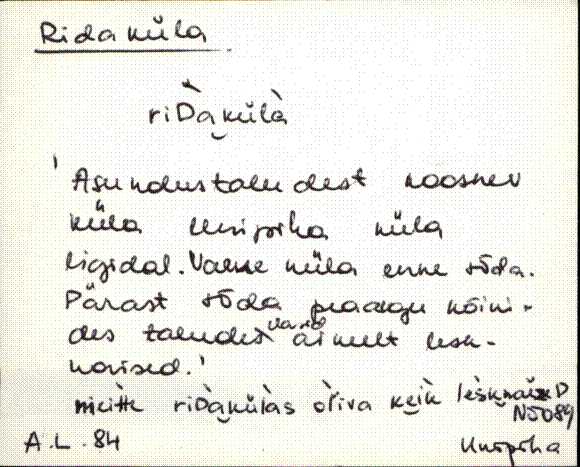 Ridaküla
riD̀a͜külà
'Asundustaludest koosnev
küla Unipiha küla
ligidal. Vaene küla enne sõda.
Pärast sõda peaaegu kõiki-
des taludes olid ainult lesk-
naised.'
meitte riDakülas oliva keik lesknaizeD
NJO89
A.L. 84
Unipiha